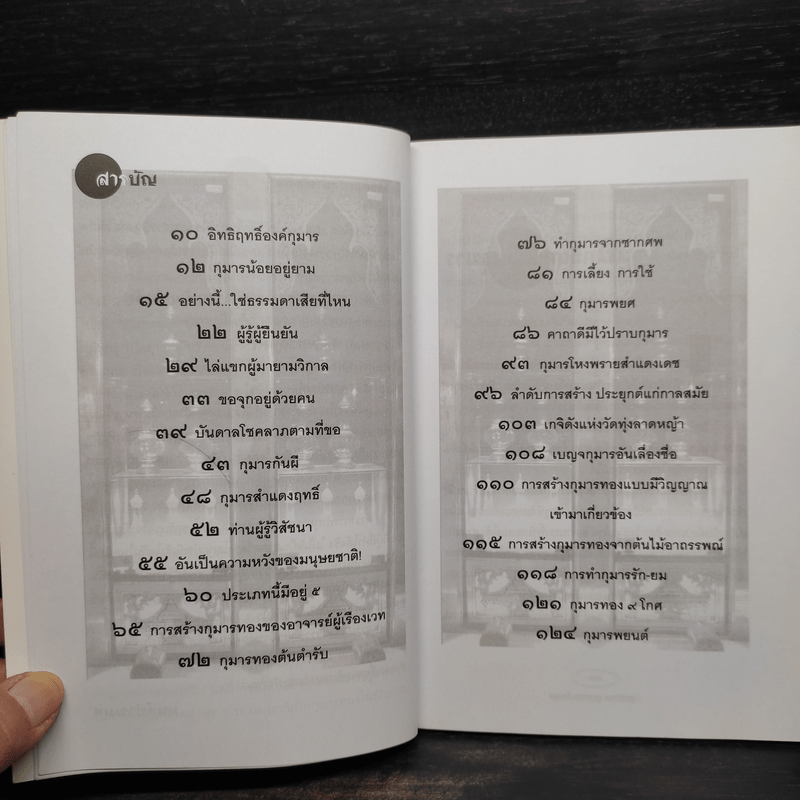 สารบัญ
๑๐ อิทธิฤทธิ์องค์กุมาร
๑๒ กุมารน้อยอยู่ยาม
๑๕ อย่างนี้...ใช่ธรรมดาเสียที่ไหน
๒๒ ผู้รู้ผู้ยืนยัน
๒๙ ไล่แขกผู้มายามวิกาล
๓๓ ขอจุกอยู่ด้วยคน
๓๙ บันดาลโชคลาภตามที่ขอ
๔๓ กุมารกันผี
๔๘ กุมารสำแดงฤทธิ์
๕๒ ท่านผู้รู้วิสัชนา
๕๕ อันเป็นความหวังของมนุษยชาติ!
๖๐ ประเภทนี้มีอยู่ ๕
๖๕ การสร้างกุมารทองของอาจารย์ผู้เรืองเวท
๗๒ กุมารทองต้นตำรับ
๗๖ ทำกุมารจากซากศพ
๘๑ การเลี้ยง การใช้
๘๔ กุมารพยศ
๘๖ คาถาดีมีไว้ปราบกุมาร
๙๓ กุมารโหงพรายสำแดงเดช
๙๖ ลำดับการสร้าง ประยุกต์แก่กาลสมัย
๑๐๓ เกจิดังแห่งวัดทุ่งลาดหญ้า
๑๐๘ เบญจกุมารอันเลื่องชื่อ
๑๑๐ การสร้างกุมารทองแบบมีวิญญาณ
เข้ามาเกี่ยวข้อง
๑๑๕ การสร้างกุมารทองจากต้นไม้อาถรรพณ์
๑๑๘ การทำกุมารรัก-ยม
๑๒๑ กุมารทอง ๙ โกศ
๑๒๔ กุมารพยนต์